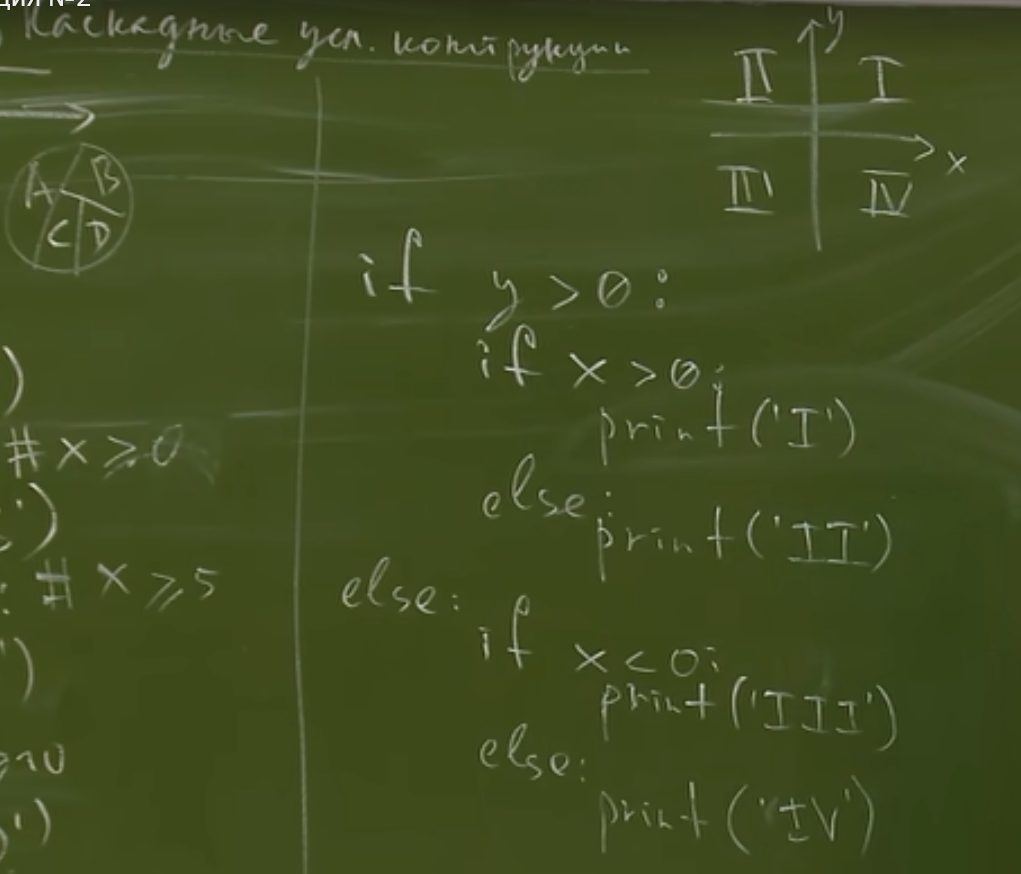 ция №2
Каскадные усл. конструкции
y
II I
x
III IV
A B
C D
)
# x ≥ 0
')
: # x ≥ 5
')
')
if y > 0:
if x > 0:
print('I')
else:
print('II')
else:
if x < 0:
print('III')
else:
print('IV')